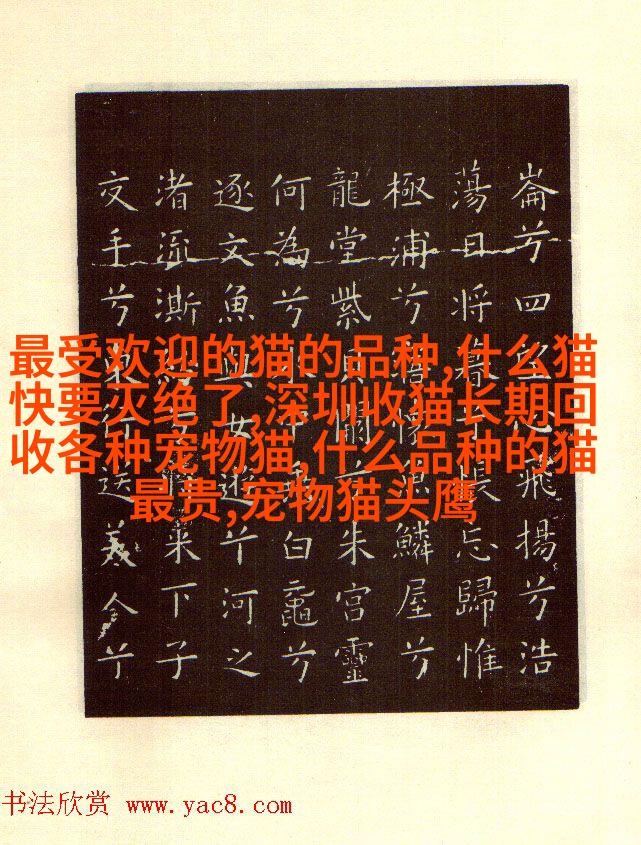 崙兮四心飛揚兮浩
蕩日將暮兮悵忘歸惟
極浦兮寤懷鱗屋兮
龍堂紫貝闕兮朱宮靈
何為兮水中白黿兮
逐文魚與女遊兮河之
渚流澌兮來下子
交手兮東行送美人兮
最受欢迎的猫的品种,什么猫
快要灭绝了,深圳收猫长期回
收各种宠物猫,什么品种的猫
最贵,宠物猫头鹰
书法欣赏 www.yac8.com